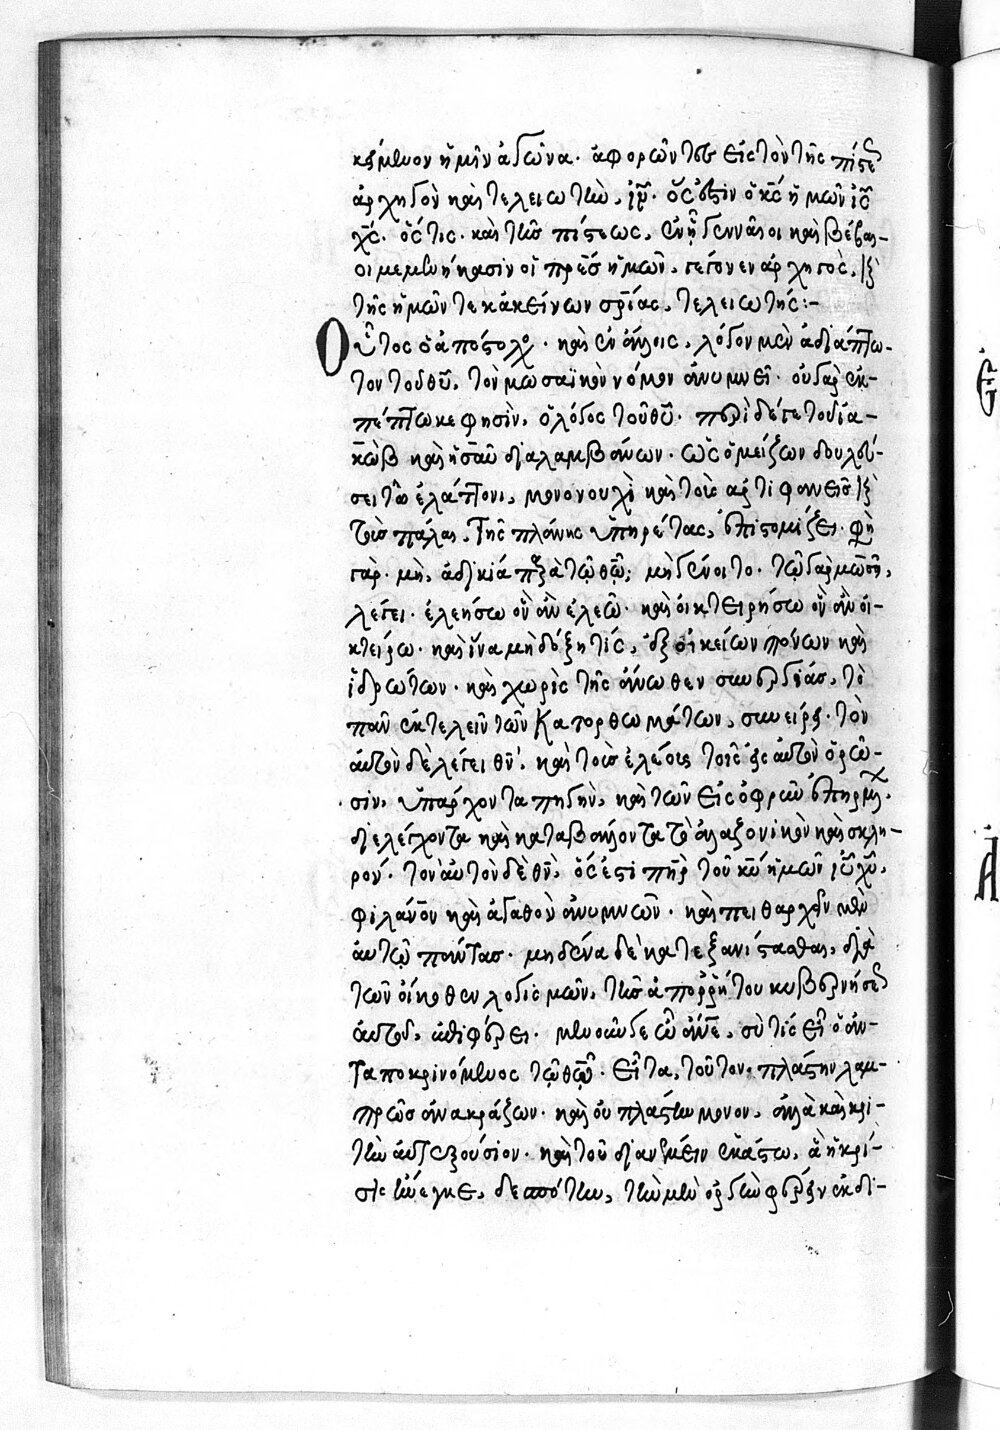 κείμενον ἡμῖν ἀγῶνα· ἀφορῶντες εἰς τὸν τῆς πίστεως
ἀρχηγὸν καὶ τελειωτὴν, ιν· ὅς ἐστιν ὁ κς ἡμῶν ις
χς· ὅς τις· καὶ τῆς πίστεως, ἐν ᾗ γεννᾶιοι καὶ βέβαι-
οι μεμενήκασιν οἱ πρες ἡμῶν, γέγονεν ἀρχηγὸς, καὶ
τῆς ἡμῶν τε κἀκείνων σριας, τελειωτής:-
Οὗτος ὁ ἀπόστολος· καὶ ἐν ἄλλοις, λόγον μὲν ἀδιάπτω-
τον τοῦ θυ, τὸν μωσαϊκὸν νόμον ἀνυμνεῖ· οὐ γὰρ ἐκ-
πέπτωκε φησὶν, ὁ λόγος τοῦ θυ· περὶ δέ γε τοῦ ἰα-
κὼβ καὶ ἠσαῦ διαλαμβάνων· ὡς ὁ μείζων δουλεύ-
σει τῶ ἐλάττονι, μονονουχὶ καὶ τοῖς ἀρτιφανεῖς καὶ
τοῖς πάλαι τῆς πλάνης ὑπηρέτας, ἐπιστομίζει· φη
γαρ· μὴ, ἀδικία παρὰ τῷ θῷ; μὴ γένοιτο· τῷ γὰρ μωση,
λέγει· ἐλεήσω ὃν ἂν ἐλεῶ· καὶ οἰκτειρήσω ὃν ἂν οἰ-
κτείρω· καὶ ἵνα μὴ δόξῃ τίς, ἐξ οἰκείων πόνων καὶ
ἱδρώτων· καὶ χωρὶς τῆς ἄνωθεν συνεργίας, τὸ
πᾶν ἐκτελεῖν τῶν κατορθωμάτων, συνείρει· τὸν
αὐτὸν δὲ λέγει θν· καὶ τοῖς ἐλέους τοῖς εἰς αὐτὸν ὁρῶ-
σιν, ὑπάρχοντα πηγὴν, καὶ τῶν εἰς ὀφρῦν ἐπηρμένων·
διελέγχοντα καὶ καταβάλλοντα τὸ ἀλαζονικὸν καὶ σκλη-
ρόν· τὸν αὐτὸν δὲ θν, ὅς ἐστι πηρ τοῦ κυ ἡμῶν ιυ χυ,
φιλάνον καὶ ἀγαθὸν ἀνυμνῶν· καὶ πειθαρχεῖν μὲν
αὐτῷ πάντας· μηδένα δὲ κατεξανίστασθαι, διὰ
τῶν οἴκοθεν λογισμῶν, τῆς ἀπορρήτου κυβερνήσεως
αὐτοῦ, ἐπιφέρει· μενοῦνγε ὦ ἄνε, σὺ τίς εἶ ὁ ἀν-
ταποκρινόμενος τῷ θῷ· εἶτα, τοῦτον, πλάστην λαμ-
πρῶς ἀνακράζων· καὶ οὐ πλάστην μόνον, ἀλλὰ καὶ κρι-
τὴν αὐτεξούσιον· καὶ τοῦ διανέμειν ἑκάστω, ἃ ἡ κρί-
σις ἤνεγκε, δεσπότην, τὴν μὲν ὀργὴν φέρειν ἐκδι-